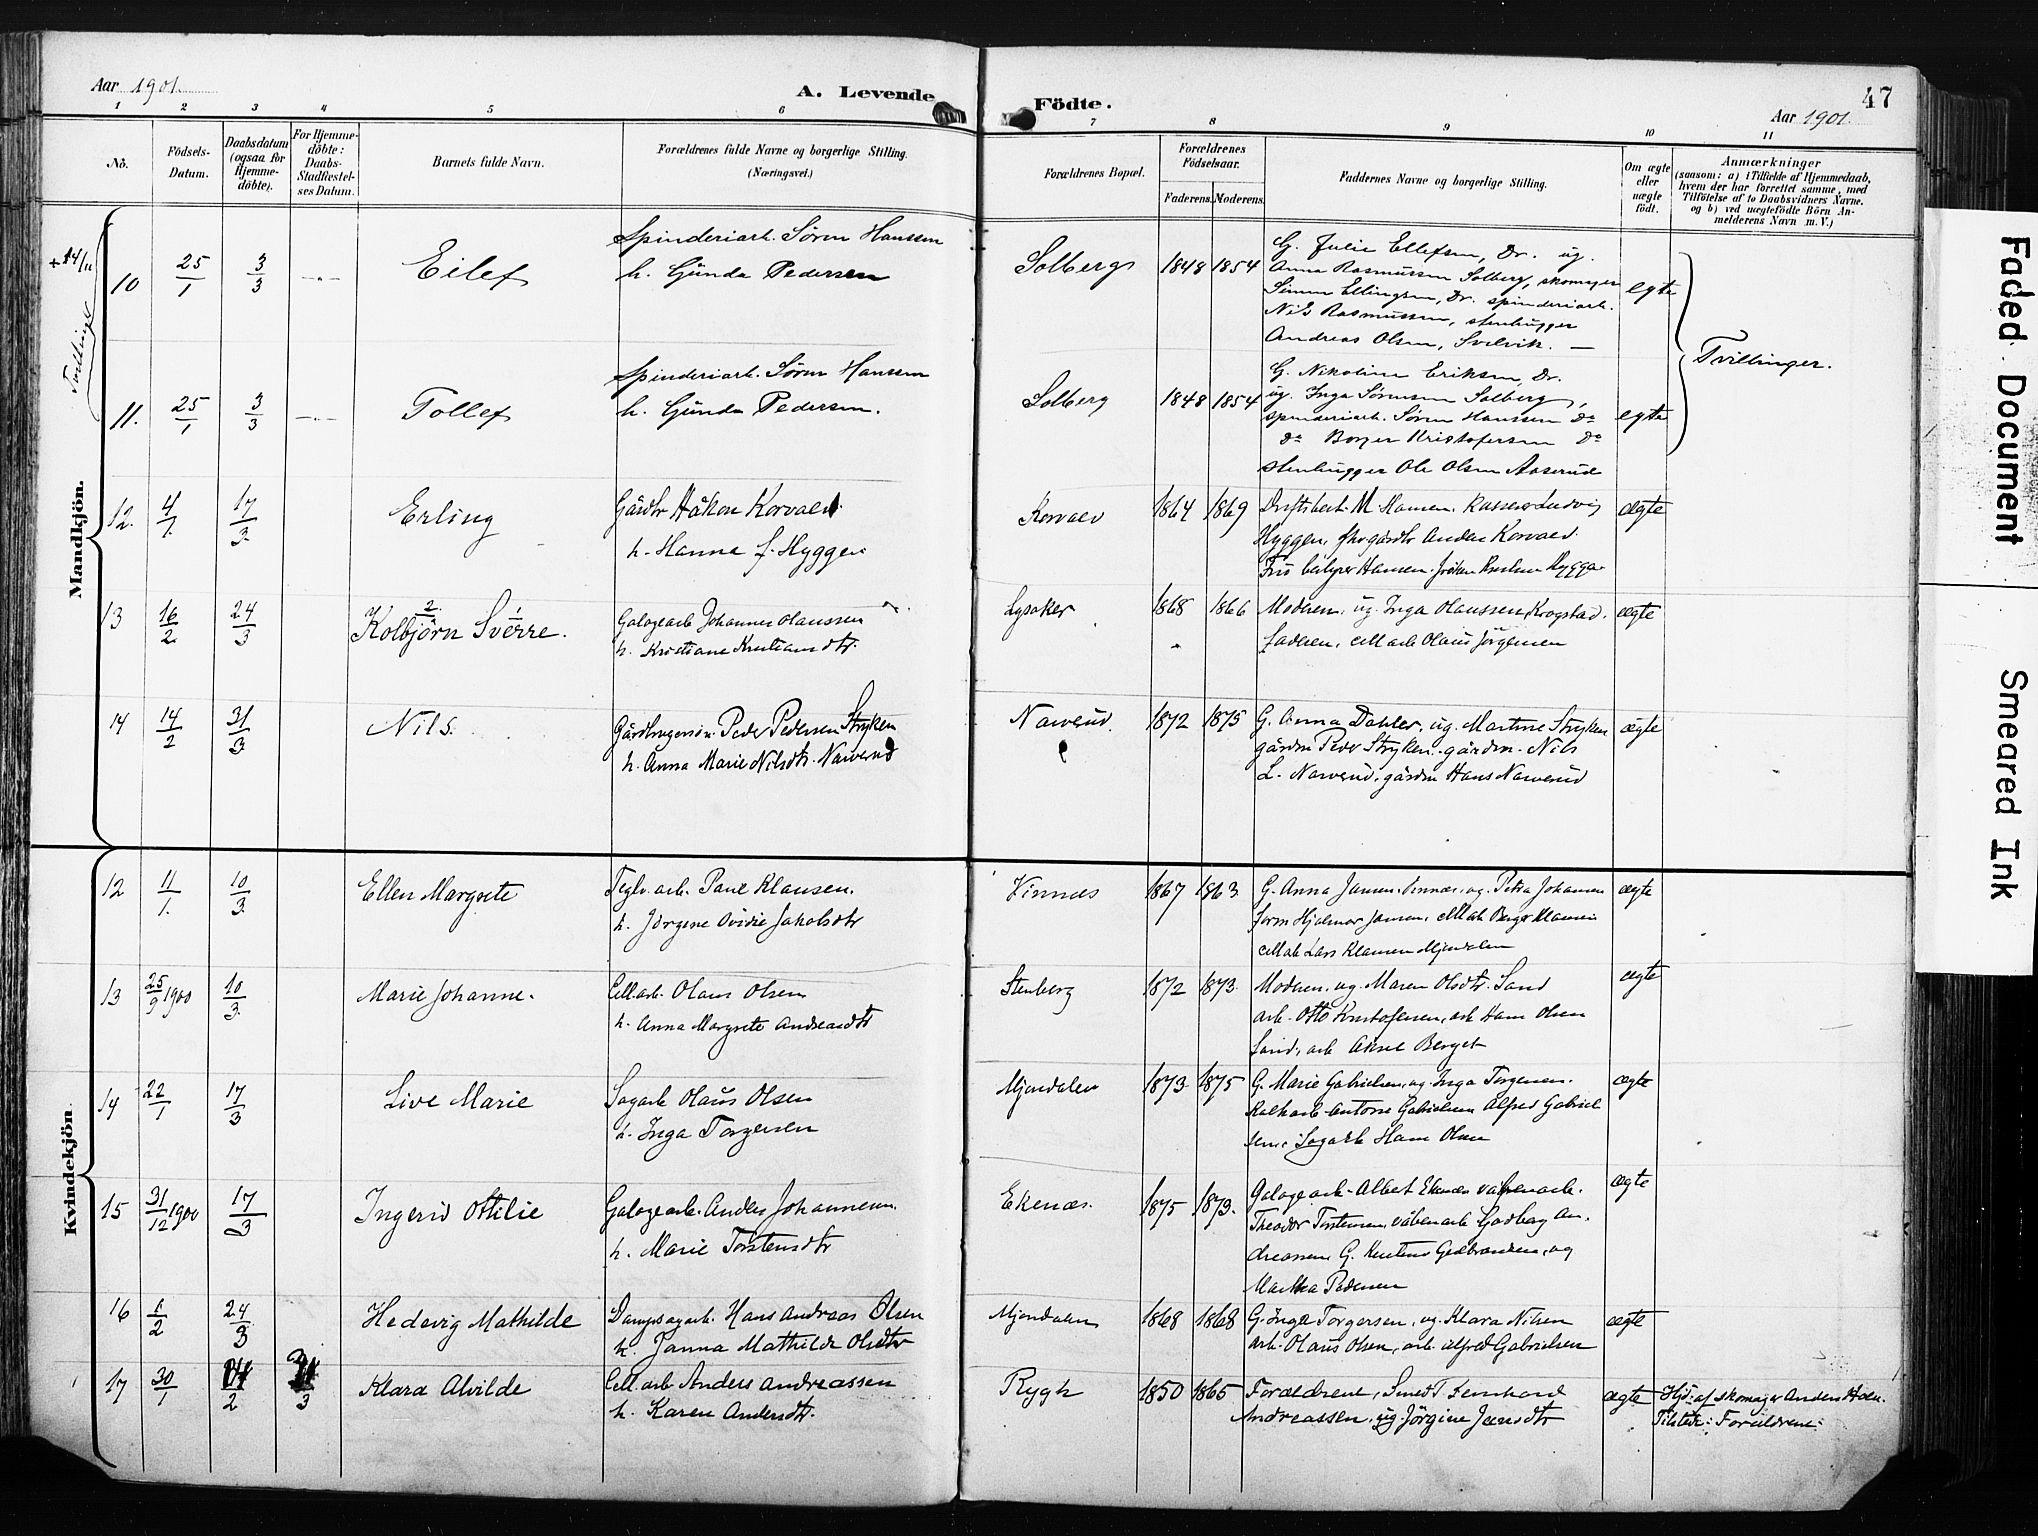 Aar 1901.
A. Levende
Födte.
47
Aar 1901.
1 2 3 4 5 6 7 8 9 10 11
No.
Födsels-Datum.
Daabsdatum (ogsaa for Hjemme-döbte).
For Hjemme-döbte: Daabs-Stadfæstel-ses Datum.
Barnets fulde Navn.
Forældrenes fulde Navne og borgerlige Stilling.
(Næringsvei.)
Forældrenes Bopæl.
Forældrenes Födselsaar.
Faderens. Moderens.
Faddernes Navne og borgerlige Stilling.
Om ægte eller uægte födt.
Anmærkninger
(saasom: a) i Tilfælde af Hjemmedaab,
hvem der har forrettet samme, med
Tilföielse af to Daabsvidners Navne.
og b) ved uægtefödte Börn An-
melderens Navn m. V.)
Mandkjön.
10 25/1 3/3 Eilef Spinderiarb. Sören Hanssen
h. Gunda Pedersen
Solberg 1848 1854 G. Julie Ellefsen, Dr. ug.
Anna Rasmussen Solberg, skomager
Simen Ellingsen, Dr. spinderiarb.
Nils Rasmussen, stenhugger
Andreas Olsen, Svelvik. —
egte
Tvillinger.
11. 25/1 3/3 Tollef Spinderiarb. Sören Hanssen
h. Gunda Pedersen.
Solberg 1848 1854 G. Nikoline Eriksen, Dr.
ug. Inga Sörensen Solberg,
spinderiarb. Sören Hanssen Do
Do Borger Kristofersen Do
stenhugger Ole Olsen Aaserud
egte
12. 4/1. 17/3. Erling Gårdbr Håkon Korvald.
h. Hanna f. Hyggen.
Korvald 1864 1869 Driftsbest. M. Hansen. Kasserer Ludvig
Hyggen, gårdbr Anders Korvald.
ægte
13 16/2 24/3 Kolbjörn Sverre. Galogearb Johannes Olaussen
h. Kristiane Kristiansdtr.
Lysaker 1868 1866 Moderen, ug. Inga Olaussen, Krogstad.
faderen, cellarb Olaus Jörgensen
ægte
14 14/2 31/3 Nils. Gårdbrugersön Peder Pedersen Stryken
h. Anna Marie Nilsdtr. Narverud
Narverud. 1872 1875 G. Anna Dahler, ug. Martine Stryken
gårdm Peder Stryken. gårdm. Nils
L. Narverud, gårdm Hans Narverud
ægte
Kvindekjön
12 11/1. 10/3. Ellen Margrete Teglv.arb. Paul Klausen.
h. Jörgine Ovidie Jakobsdtr
Vinnæs 1867 1863 G. Anna Jansen Vinnæs, ug. Petra Johansen
form Hjalmar Jansen, cellarb Berger Klausen
cellarb Lars Klausen Mjøndalen
ægte
13 25/9 1900 10/3. Marie Johanne. Cell.arb. Olaus Olsen
h. Anna Margrete Andreasdtr
Stenberg 1872 1873. Moderen, ug. Maren Olsdtr. Sand
arb. Otto Kristofersen, arb Hans Olsen
Sand, arb Aksel Berget
ægte
14 22/1 17/3 Live Marie Sagarb Olaus Olsen
h. Inga Torgersen
Mjøndalen 1873 1875 G. Marie Gabrielsen, ug. Inga Torgersen.
Kalkarb Antone Gabrielsen Alfred Gabriel
sen, Sagarb Hans Olsen
ægte
15 31/12 1900 17/3 Ingerid Ottilie Galogearb. Anders Johannesen.
h. Marie Torstensdtr
Ekenæs. 1875 1873. Galogearb. Albert Ekenæs våbenarb.
Theodor Torstensen, våbenarb Godberg An,
dreassen G. Kristine Gulbrandsen, og
Martha Pedersen
ægte
16 1/2 24/3 Hedevig Mathilde Dampsagarb. Hans Andreas Olsen
h. Janna Mathilde Olsdtr
Mjøndalen 1868 1868 G. Inga Torgersen, ug. Klara Nilsen
arb. Olaus Olsen, arb Alfred Gabrielsen
ægte
17 30/1 Klara Alvilde Cell.arb Anders Andreassen
h. Karen Andersdtr.
Rygh 1850 1865 Forældrene, Smed T. Bernhard
Andreassen, ug Jörgine Jansdtr
ægte Hjd. af skomager Anders Holm.
Tilstede: Forældrene.
Faded Document
Smeared Ink